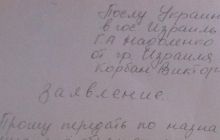 Послу Украины
в гос. Израиль
Г.А Надоленко
от гр. Израиля
Корбан Виктор
Заявление.
Прошу передать по назна